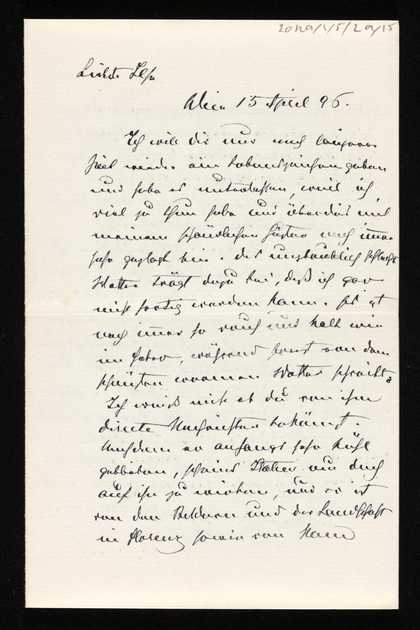 2019/1/5/29/15
Liebste
Wien 15 April 96.
Ich will dir nur nach längerer
Zeit wieder ein Lebenszeichen geben
und habe es unterlassen, weil ich
viel zu thun habe und überdies mit
meinem scheußlichen Husten noch immer
sehr geplagt bin. Das unglaublich schlechte
Wetter trägt dazu bei, daß ich gar
nicht fertig werden kann. Es ist
noch immer so rauh und kalt wie
im Feber, während Ernst von dem
schönsten warmen Wetter schreibt.
Ich weiß nicht ob du von ihm
directe Nachrichten bekömst.
Nachdem er anfangs sehr kühl
geblieben, scheint Italien nun doch
auf ihn zu wirken, und er ist
von den Bildern und der Landschaft
in Florenz sowie von